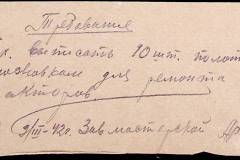 Требование
к. выписать 10 шт. полот
ножовкам для ремонта
акторов.
9/III-42г. Зав мастерской